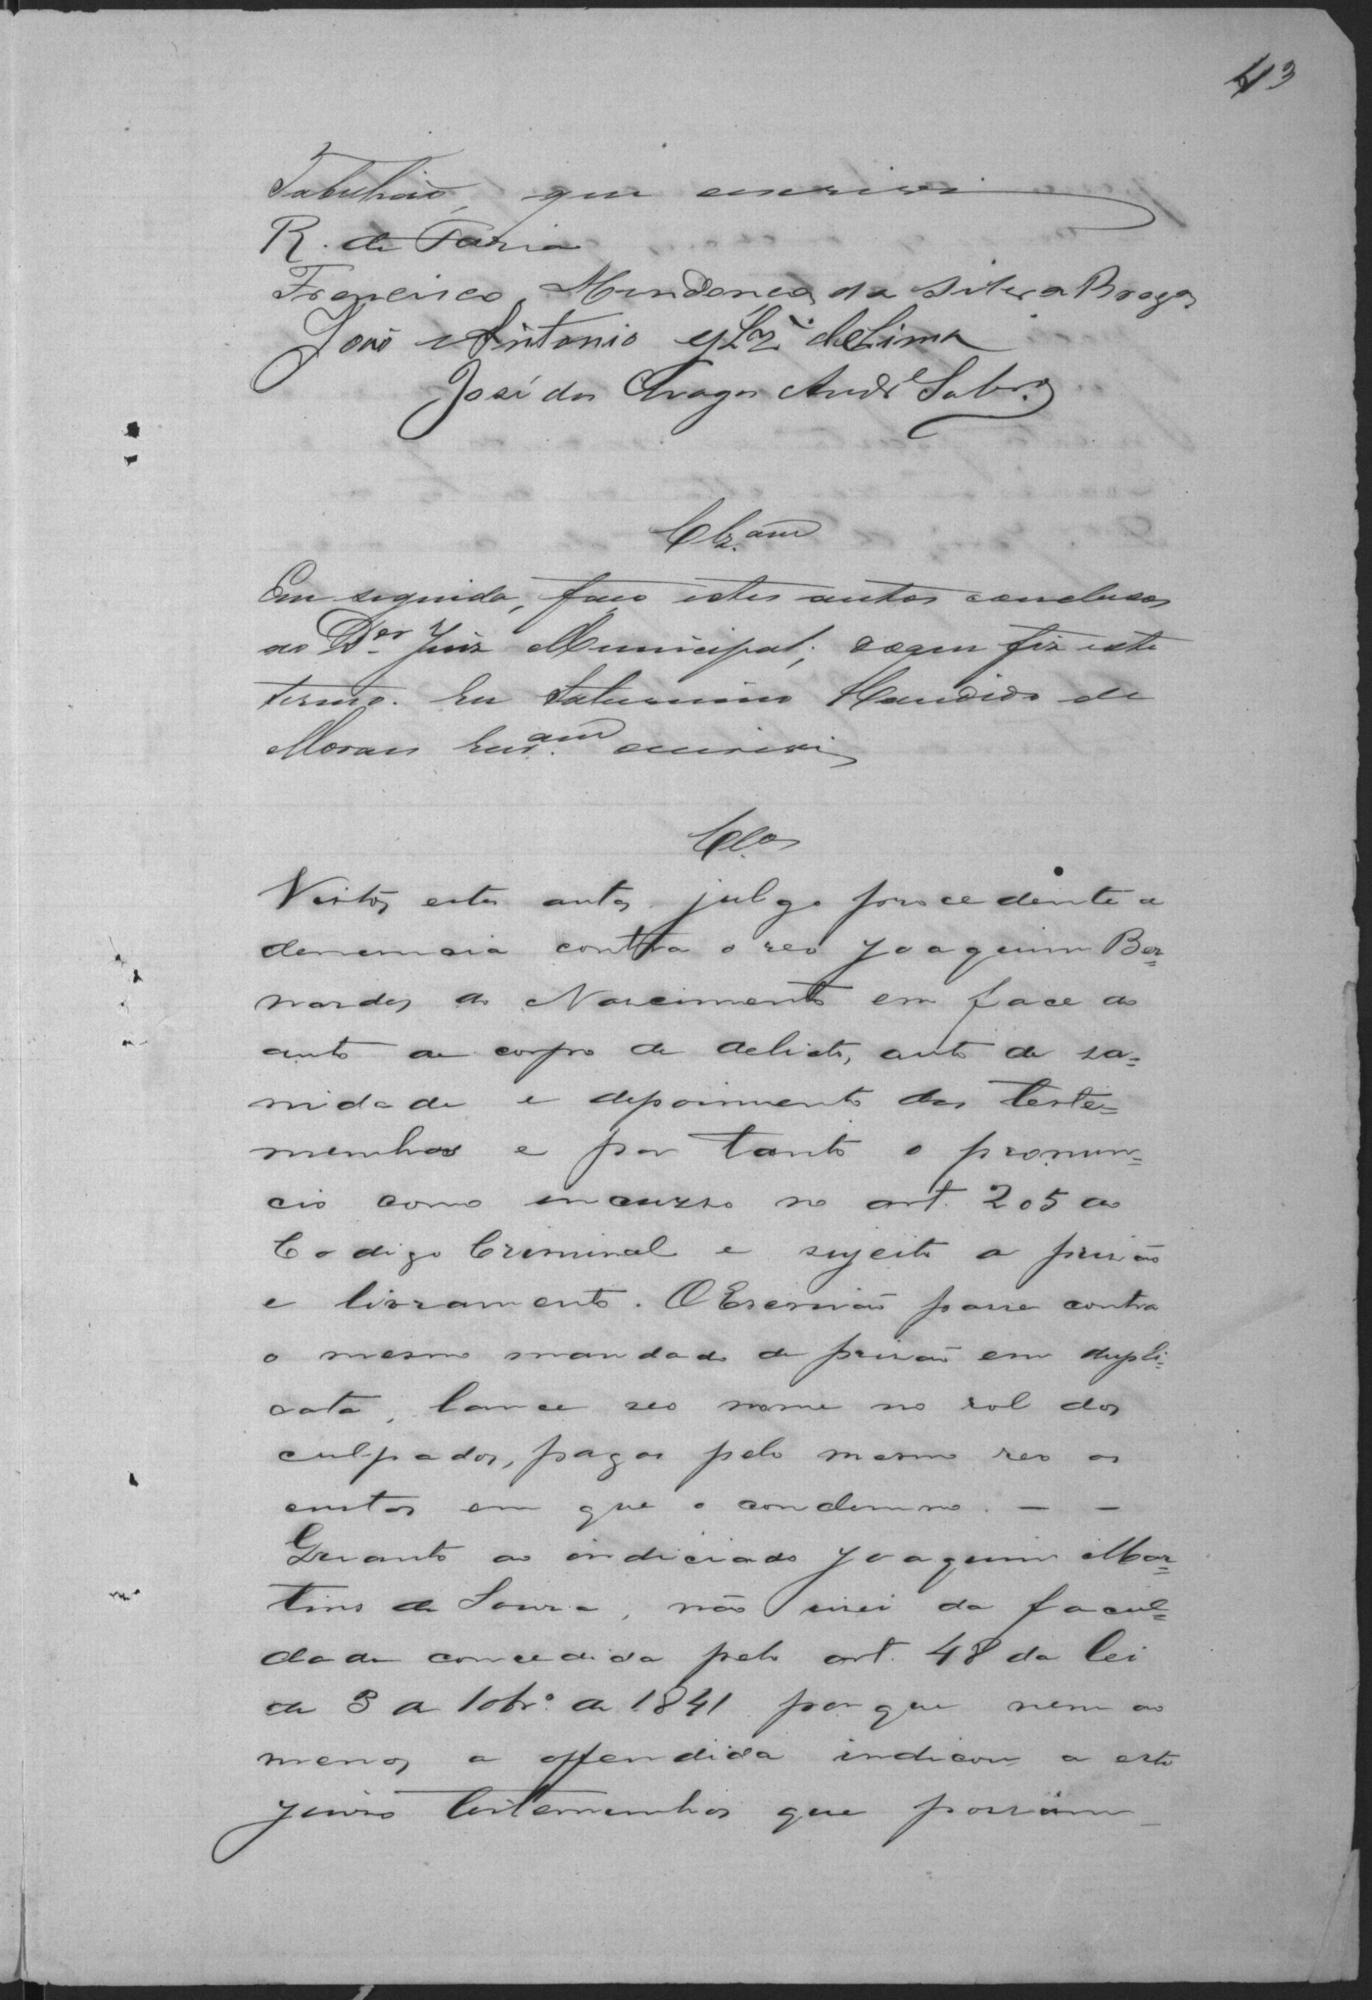 43
Tabellião, que escrevi
R. de Faria
Francisco Mendonca da Silva Braga
João Antonio de Lima
José das Chagas Andr.e Sobr.o
Clz.am
Em seguida, faço estes autos conclusos
ao D.or Juiz Municipal; do que fiz este
termo. Eu Saturnino Candido de
Moraes Escr.am escrevi
Cl.os
Vistos estes autos julgo procedente a
denuncia contra o reo Joaquim Ber=
nardes do Nascimento em face do
auto de corpo de delicto, auto de sa=
nidade e depoimento das teste=
munhas e por tanto o pronun=
cio como incurso no art. 205 do
Codigo Criminal e sujeito a prisão
e livramento. O Escrivão passe contra
o mesmo mandado de prisão em dupli=
cata, lance seo nome no rol dos
culpados, pagas pelo mesmo reo as
custas em que o condemno. — —
Quanto ao indiciado Joaquim Mar=
tins de Souza, não usei da facul=
dade concedida pelo art. 48 da lei
de 3 de 10br.o de 1841 por que nem ao
menos a offendida indicou a este
juizo testemunhas que possam